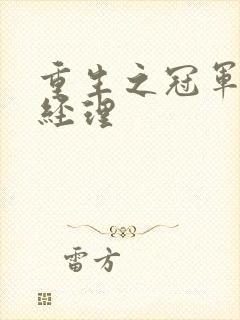 重生之冠軍
經理
雷方